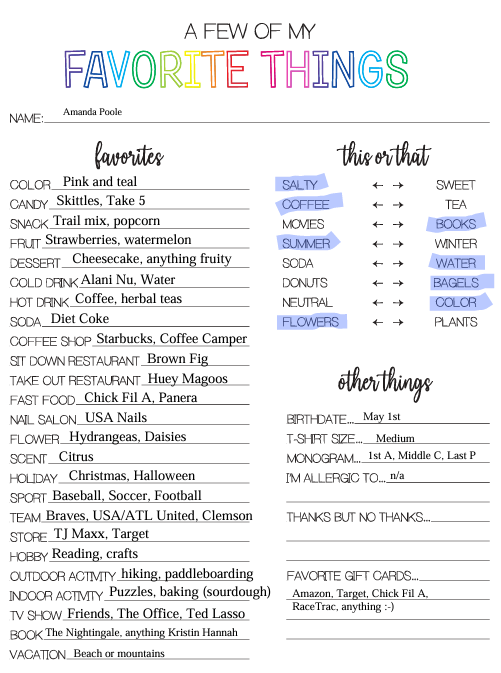 A FEW OF MY
FAVORITE THINGS
NAME: Amanda Poole
favorites
COLOR Pink and teal
CANDY Skittles, Take 5
SNACK Trail mix, popcorn
FRUIT Strawberries, watermelon
DESSERT Cheesecake, anything fruity
COLD DRINK Alani Nu, Water
HOT DRINK Coffee, herbal teas
SODA Diet Coke
COFFEE SHOP Starbucks, Coffee Camper
SIT DOWN RESTAURANT Brown Fig
TAKE OUT RESTAURANT Huey Magoos
FAST FOOD Chick Fil A, Panera
NAIL SALON USA Nails
FLOWER Hydrangeas, Daisies
SCENT Citrus
HOLIDAY Christmas, Halloween
SPORT Baseball, Soccer, Football
TEAM Braves, USA/ATL United, Clemson
STORE TJ Maxx, Target
HOBBY Reading, crafts
OUTDOOR ACTIVITY hiking, paddleboarding
INDOOR ACTIVITY Puzzles, baking (sourdough)
TV SHOW Friends, The Office, Ted Lasso
BOOK The Nightingale, anything Kristin Hannah
VACATION Beach or mountains
this or that
SALTY ← → SWEET
COFFEE ← → TEA
MOVIES ← → BOOKS
SUMMER ← → WINTER
SODA ← → WATER
DONUTS ← → BAGELS
NEUTRAL ← → COLOR
FLOWERS ← → PLANTS
other things
BIRTHDATE... May 1st
T-SHIRT SIZE... Medium
MONOGRAM... 1st A, Middle C, Last P
I'M ALLERGIC TO... n/a
THANKS BUT NO THANKS...
FAVORITE GIFT CARDS...
Amazon, Target, Chick Fil A,
RaceTrac, anything :-)